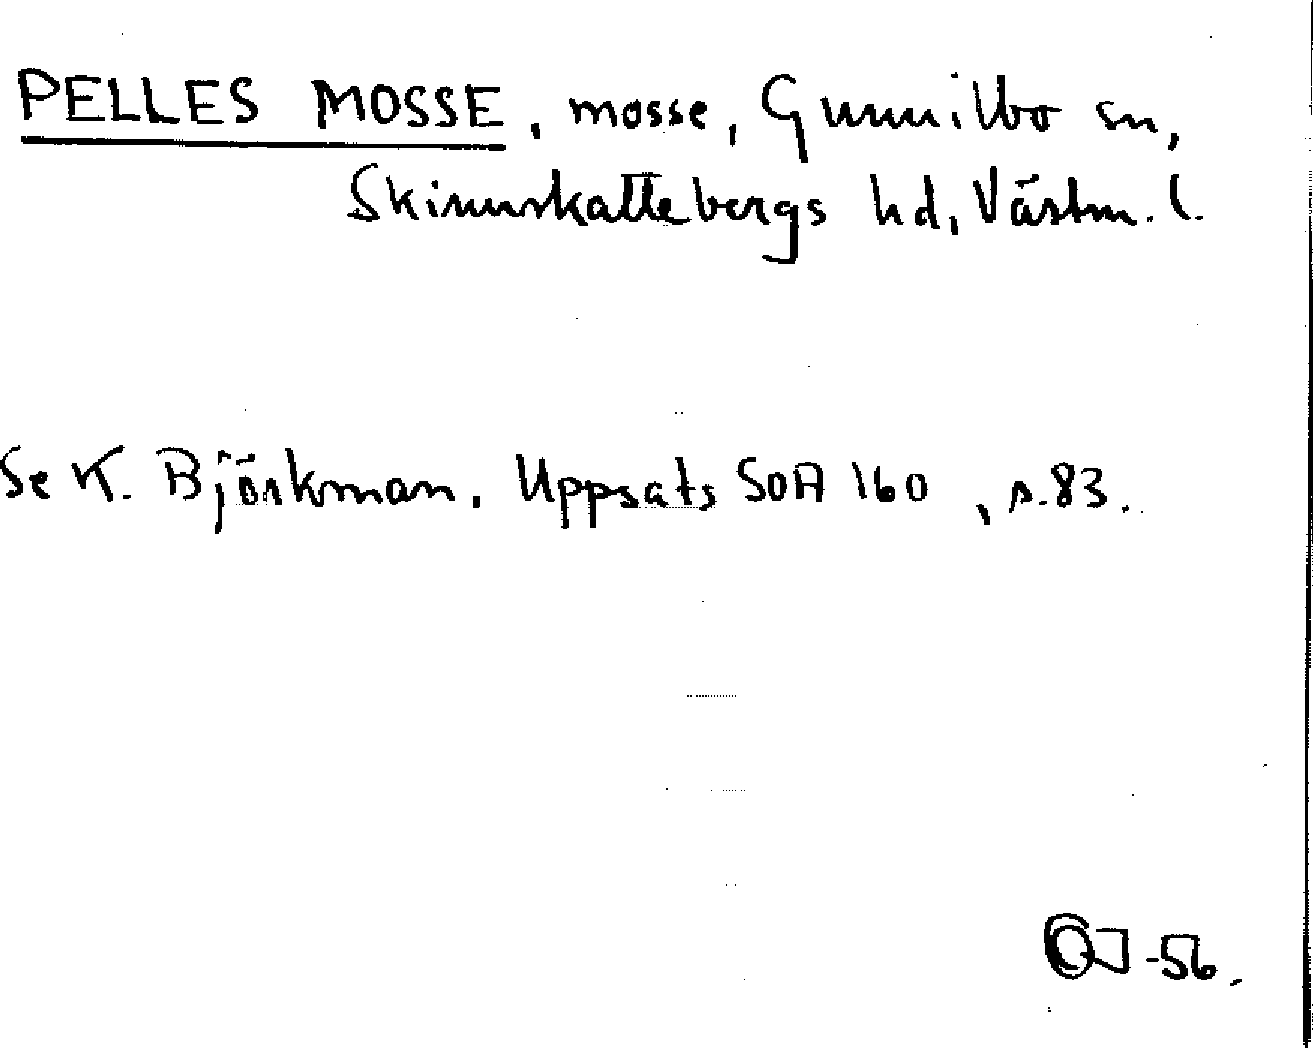 PELLES MOSSE, mosse, Gunnilbo sn,
Skinnskattebergs hd, Västm. l.
Se K. Björkman. Uppsats SOA 160, s. 83.
-56.